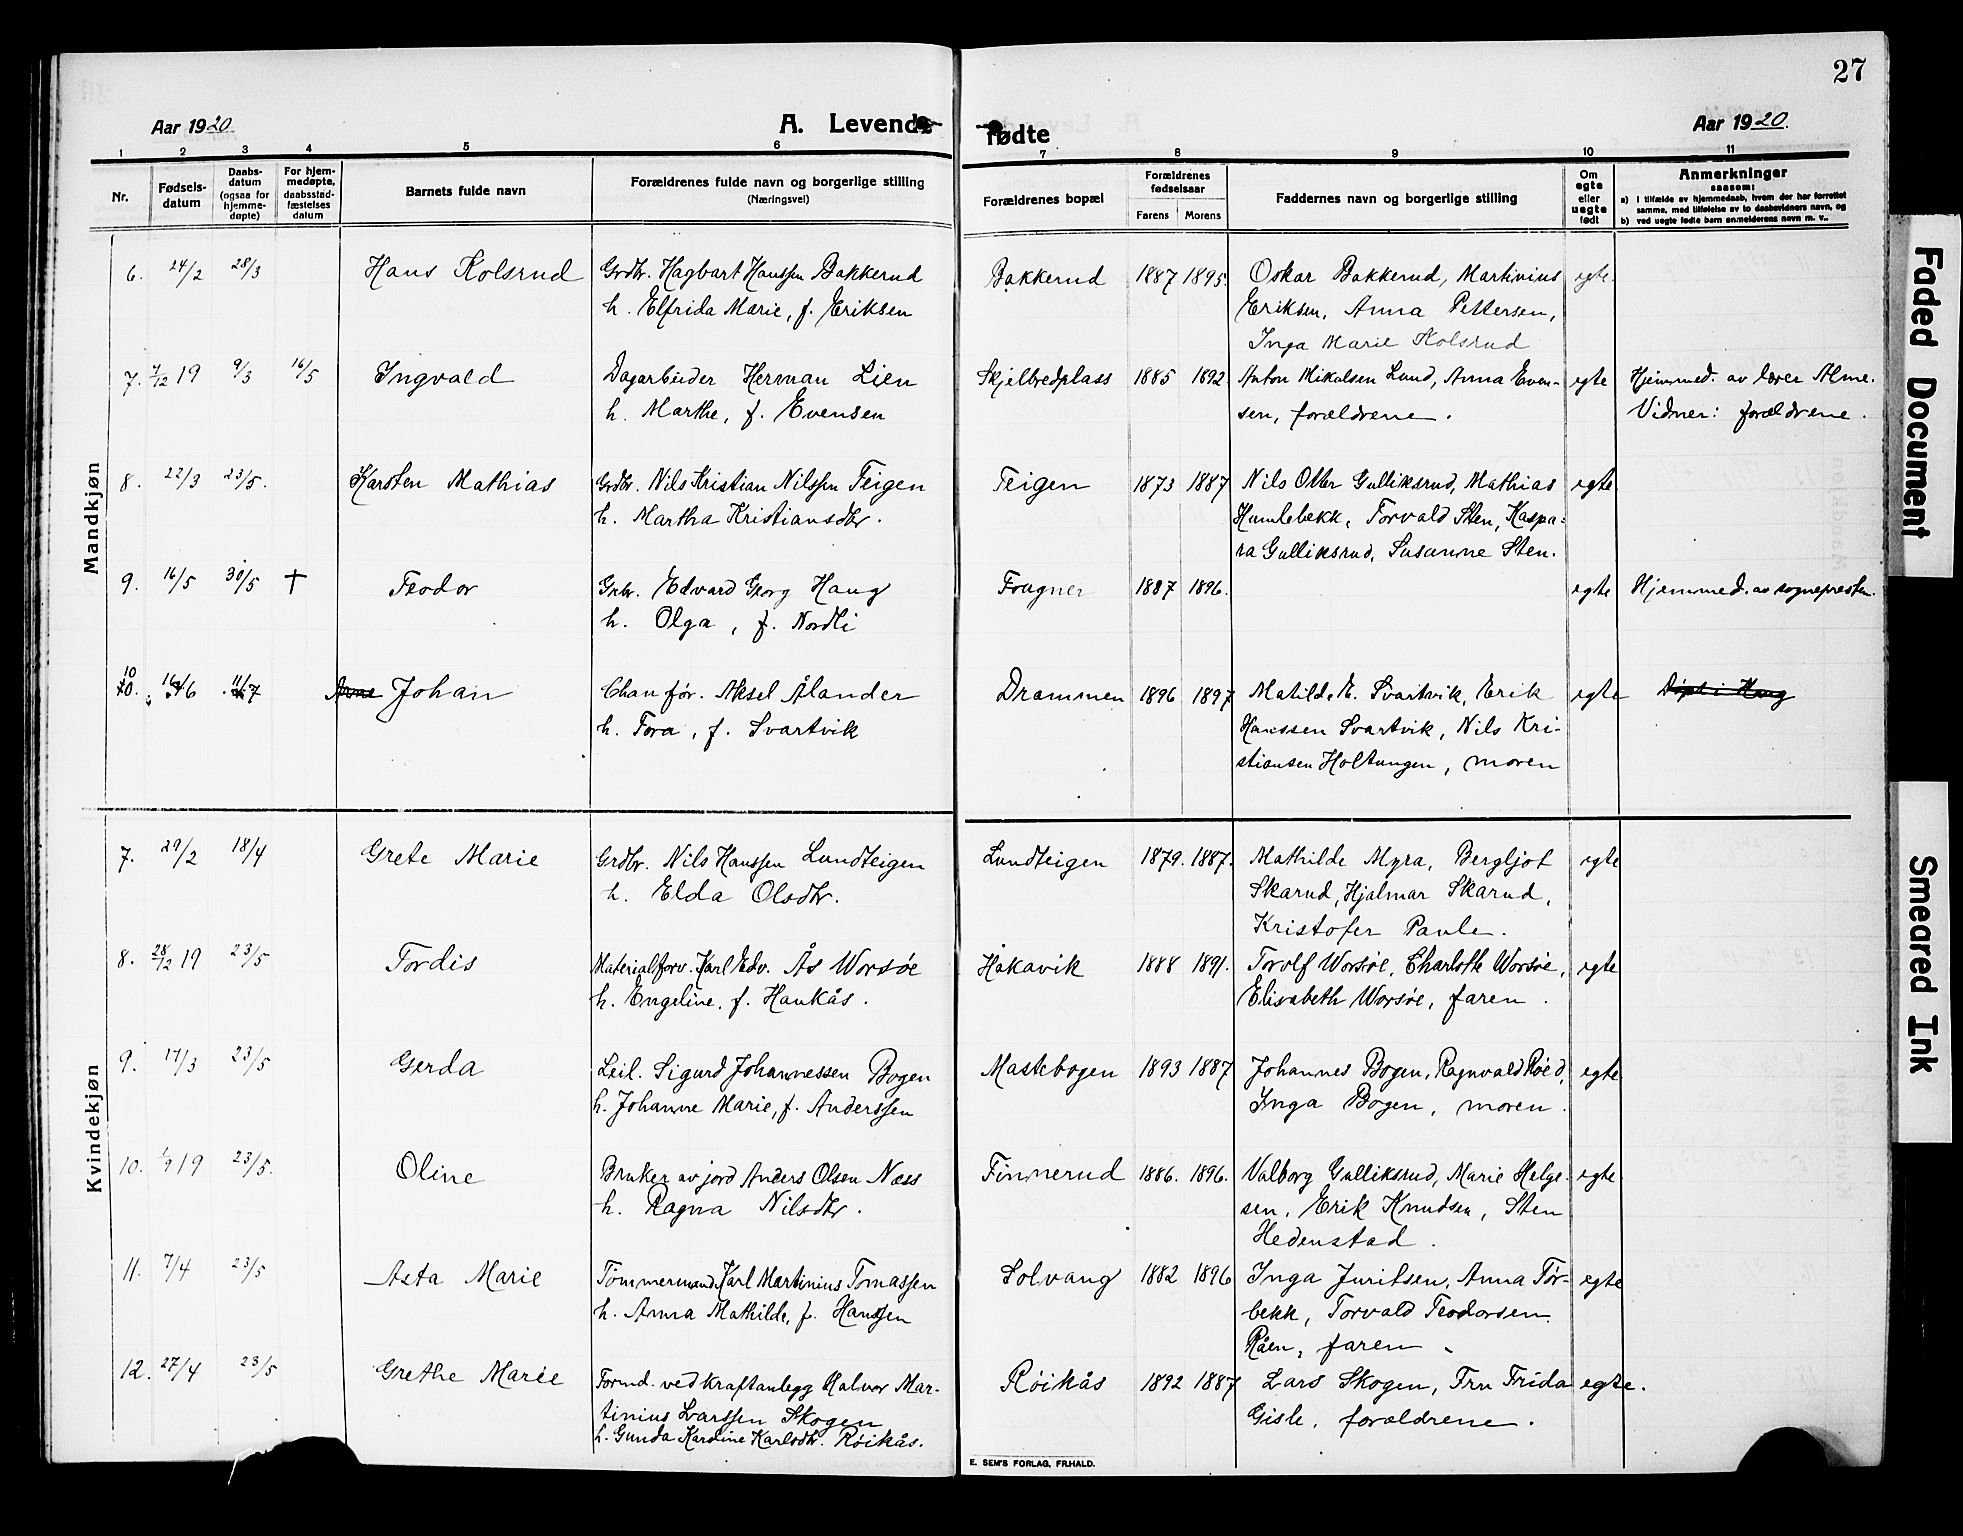 27
Aar 1920
A. Levende fødte
Aar 1920.
1 2 3 4 5 6 7 8 9 10 11
Nr.
Fødsels-
datum
Daabs-
datum
(ogsaa for
hjemme-
døpte)
For hjem-
medøpte,
daabsstad-
fæstelses
datum
Barnets fulde navn
Forældrenes fulde navn og borgerlige stilling
(Næringsvei)
Forældrenes bopæl
Forældrenes
fødselsaar
Farens Morens
Faddernes navn og borgerlige stilling
Om
egte
eller
uegte
født
Anmerkninger
saasom:
a) i tilfælde av hjemmedaab, hvem der har forrettet
samme, med tilføielse av to daabsvidners navn, og
b) ved uegte fødte barn anmelderens navn m. v..
Mandkjøn
6. 24/2 28/3 Hans Kolsrud Grdbr. Hagbart Hanssen Bakkerud Bakkerud 1887 1895. Oskar Bakkerud, Martinius egte.
h. Elfrida Marie, f. Eriksen Eriksen, Anna Pettersen,
Inga Marie Kolsrud
7. 7/12 19 9/3 16/5 Ingvald Dagarbeider Herman Lien Skjelbredplass 1885 1892. Anton Mikalsen Lund, Anna Even- egte Hjemmed. av lærer Alme.
h. Marthe, f. Evensen sen, forældrene. Vidner: forældrene.
8. 22/3 23/5. Karsten Mathias Grdbr. Nils Kristian Nilssen Teigen Teigen 1873 1887 Nils Otter Gulliksrud, Mathias egte
h. Martha Kristiansdtr. Humlebekk, Torvald Sten, Kaspa-
ra Gulliksrud, Susanne Sten.
9. 16/5 30/5 † Teodor Grbr. Edvard Georg Haug Fougner 1887 1896. egte Hjemmed. av sognepresten.
h. Olga, f. Nordli
10. 16/6 11/7 Arne Johan Chauffør. Aksel Ålander Drammen 1896 1897 Matilde E. Svartvik, Erik egte Døpt i Haug
h. Tora, f. Svartvik Hanssen Svartvik, Nils Kri-
stiansen Holtungen, moren
Kvindekjøn
7. 29/2 18/4 Grete Marie Grdbr. Nils Hanssen Lundteigen Lundteigen 1879. 1887. Mathilde Myra, Bergljot egte
h. Elda Olsdtr. Skarud, Hjalmar Skarud,
Kristofer Paule.
8. 28/12 19 23/5 Tordis Materialforv. Karl Edv. Ås Worsøe Håkavik 1888 1891. Torolf Worsøe, Charlotte Worsøe, egte
h. Engeline, f. Haukås. Elisabeth Worsøe, faren.
9. 17/3 23/5 Gerda Leil. Sigurd Johannessen Bogen Mastebogen 1893 1887 Johannes Bogen, Ragnvald Røed, egte
h. Johanne Marie, f. Anderssen Inga Bogen, moren.
10. 1/9 19 23/5. Oline Bruker av jord Anders Olsen Næss Finnerud 1886. 1896. Valborg Gulliksrud, Marie Helge- egte.
h. Ragna Nilsdtr. sen, Erik Knudsen, Sten
Hedenstad.
11. 7/4 23/5 Asta Marie Tømmermand Karl Martinius Tomassen Solvang 1882 1896 Inga Juritsen, Anna Tor- egte
h. Anna Mathilde, f. Hanssen bekk, Torvald Teodorsen
Råen, faren.
12. 27/4 23/5 Grethe Marie Formd. ved kraftanlegg Halvor Mar- Røikås 1892 1887 Lars Skogen, Fru Frida egte.
tinius Larssen Skogen Gisle, forældrene.
h. Gunda Karoline Karlsdtr. Røikås.
E. SEM'S FORLAG, FR.HALD.
Faded Document
Smeared Ink